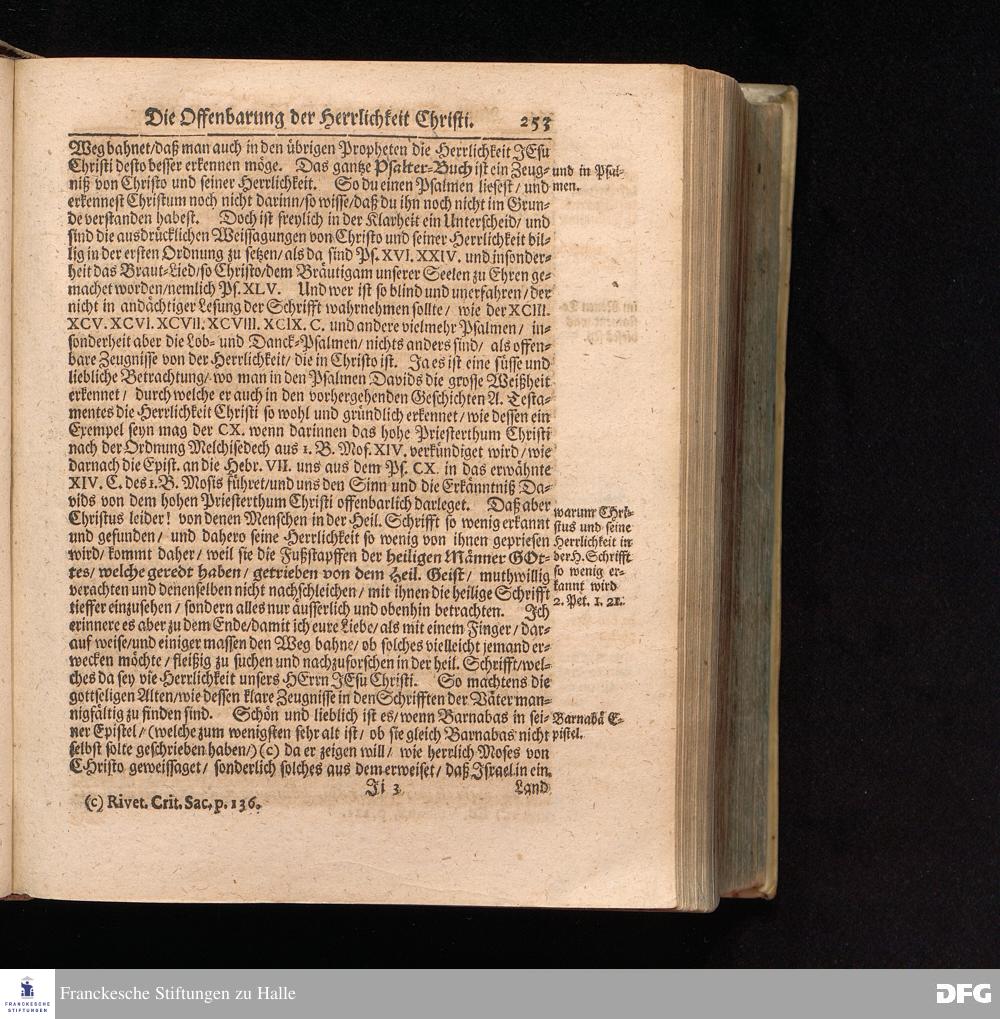 Die Offenbarung der Herrlichkeit Christi. 253
Weg bahnet/daß man auch in den übrigen Propheten die Herrlichkeit JEsu
Christi desto besser erkennen möge. Das gantze Psalter-Buch ist ein Zeug-
niß von Christo und seiner Herrlichkeit. So du einen Psalmen liesest/ und
erkennest Christum noch nicht darinn/so wisse/daß du ihn noch nicht im Grun-
de verstanden habest. Doch ist freylich in der Klarheit ein Unterscheid/ und
sind die ausdrücklichen Weissagungen von Christo und seiner Herrlichkeit bil-
lig in der ersten Ordnung zu setzen/als da sind Ps. XVI. XXIV. und insonder-
heit das Braut-Lied/so Christo/dem Bräutigam unserer Seelen zu Ehren ge-
machet worden/nemlich Ps. XLV. Und wer ist so blind und unerfahren/der
nicht in andächtiger Lesung der Schrifft wahrnehmen sollte/ wie der XCIII.
XCV. XCVI. XCVII. XCVIII. XCIX. C. und andere vielmehr Psalmen/ in-
sonderheit aber die Lob- und Danck-Psalmen/ nichts anders sind/ als offen-
bare Zeugnisse von der Herrlichkeit/ die in Christo ist. Ja es ist eine süsse und
liebliche Betrachtung/ wo man in den Psalmen Davids die grosse Weißheit
erkennet/ durch welche er auch in den vorhergehenden Geschichten A. Testa-
mentes die Herrlichkeit Christi so wohl und gründlich erkennet/ wie dessen ein
Exempel seyn mag der CX. wenn darinnen das hohe Priesterthum Christi
nach der Ordnung Melchisedech aus 1. B. Mos. XIV. verkündiget wird/ wie
darnach die Epist. an die Hebr. VII. uns aus dem Ps. CX. in das erwähnte
XIV. C. des 1. B. Mosis führet/und uns den Sinn und die Erkänntniß Da-
vids von dem hohen Priesterthum Christi offenbarlich darleget. Daß aber
Christus leider! von denen Menschen in der Heil. Schrifft so wenig erkannt
und gefunden/ und dahero seine Herrlichkeit so wenig von ihnen gepriesen
wird/ kommt daher/ weil sie die Fußstapffen der heiligen Männer GOt-
tes/ welche geredt haben/ getrieben von dem Heil. Geist/ muthwillig
verachten und denenselben nicht nachschleichen/ mit ihnen die heilige Schrifft
tieffer einzusehen/ sondern alles nur äusserlich und obenhin betrachten. Ich
erinnere es aber zu dem Ende/damit ich eure Liebe/als mit einem Finger/ dar-
auf weise/und einiger massen den Weg bahne/ ob solches vielleicht jemand er-
wecken möchte/ fleißig zu suchen und nachzuforschen in der heil. Schrifft/wel-
ches da sey vie Herrlichkeit unsers HErrn JEsu Christi. So machtens die
gottseligen Alten/wie dessen klare Zeugnisse in den Schrifften der Väter man-
nigfältig zu finden sind. Schön und lieblich ist es/wenn Barnabas in sei-
ner Epistel/(welche zum wenigsten sehr alt ist/ ob sie gleich Barnabas nicht
selbst solte geschrieben haben/)(c) da er zeigen will/ wie herrlich Moses von
CHristo geweissaget/ sonderlich solches aus dem erweiset/ daß Israel in ein
Ji 3 Land
(c) Rivet. Crit. Sac. p. 136.
und in Psal-
men.
warum Chri-
stus und seine
Herrlichkeit in
der H. Schrifft
so wenig er-
kannt wird
2. Pet. 1. 21.
Barnabä E-
pistel.
FRANCKESCHE
STIFTUNGEN
Franckesche Stiftungen zu Halle
DFG